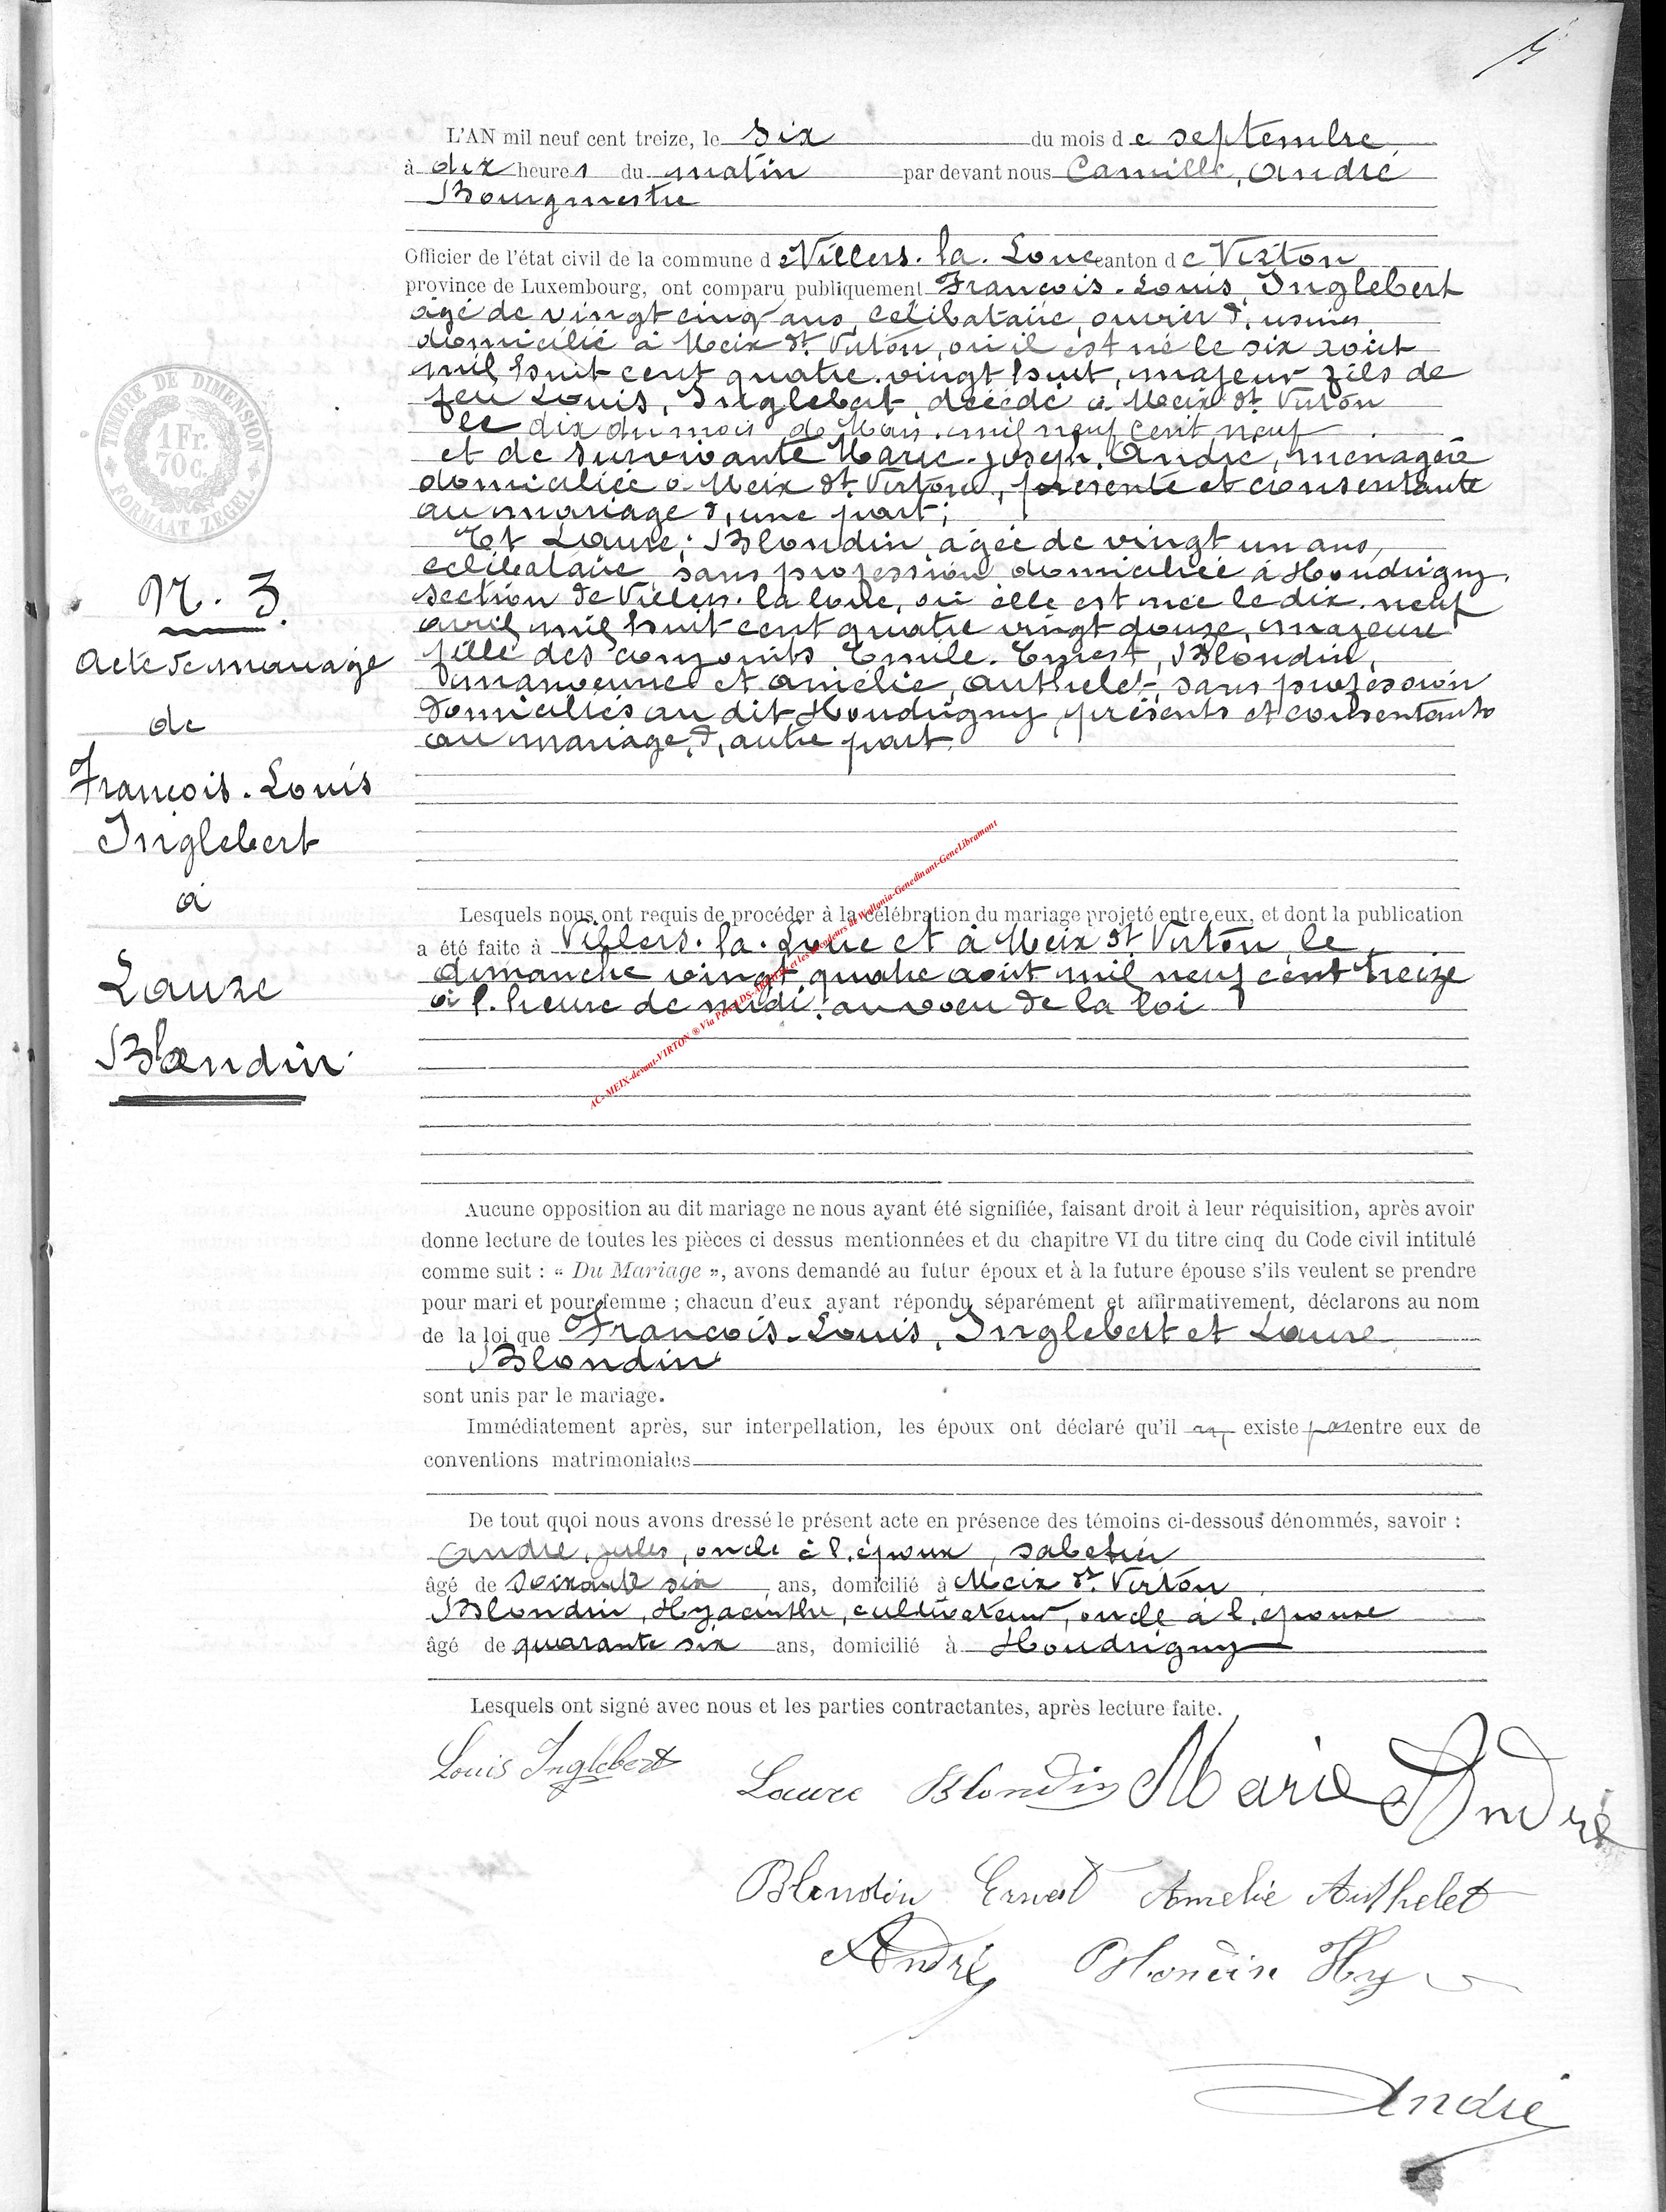 L'AN mil neuf cent treize, le six du mois de septembre
à dix heures du matin par devant nous Camille, André
Bourgmestre
Officier de l'état civil de la commune de Villers-la-Loue canton de Virton
province de Luxembourg, ont comparu publiquement François-Louis, Inglebert
âgé de vingt cinq ans, célibataire, ouvrier d'usines
domicilié à Meix dt Virton, où il est né le six août
mil huit cent quatre-vingt huit, majeur fils de
feu Louis, Inglebert, décédé à Meix dt Virton
le dix du mois de Mars mil neuf cent neuf
et de survivante Marie-Joseph, André, ménagère
domiciliée à Meix dt Virton, présente et consentante
au mariage d'une part;
Et Laure, Blondin, âgée de vingt un ans,
célibataire, sans profession domiciliée à Houdrigny,
section de Villers-la-loue, où elle est née le dix-neuf
avril mil huit cent quatre vingt douze, majeure
fille des conjoints Emile-Ernest, Blondin,
manoeuvre et Amélie, Authelet, sans profession
domiciliés au dit Houdrigny, présents et consentants
au mariage, d'autre part.
TIMBRE DE DIMENSION
1 Fr.
70 c.
FORMAAT ZEGEL
N. 3.
Acte de mariage
de
François-Louis
Inglebert
à
Laure
Blondin
Lesquels nous ont requis de procéder à la célébration du mariage projeté entre eux, et dont la publication
a été faite à Villers-la-Loue et à Meix dt Virton le
dimanche vingt quatre août mil neuf cent treize
à l'heure de midi au voeu de la loi
Aucune opposition au dit mariage ne nous ayant été signifiée, faisant droit à leur réquisition, après avoir
donne lecture de toutes les pièces ci dessus mentionnées et du chapitre VI du titre cinq du Code civil intitulé
comme suit : « Du Mariage », avons demandé au futur époux et à la future épouse s'ils veulent se prendre
pour mari et pour femme ; chacun d'eux ayant répondu séparément et affirmativement, déclarons au nom
de la loi que François-Louis, Inglebert et Laure
Blondin
sont unis par le mariage.
Immédiatement après, sur interpellation, les époux ont déclaré qu'il n'y existe pas entre eux de
conventions matrimoniales
De tout quoi nous avons dressé le présent acte en présence des témoins ci-dessous dénommés, savoir :
André, Jules, oncle à l'époux, sabotier
âgé de soixante six ans, domicilié à Meix dt Virton
Blondin, Hyacinthe, cultivateur, oncle à l'épouse
âgé de quarante six ans, domicilié à Houdrigny
Lesquels ont signé avec nous et les parties contractantes, après lecture faite.
Louis Inglebert Laure Blondin Marie André
Blondin Ernest Amelie Authelet
André Blondin Hy
André